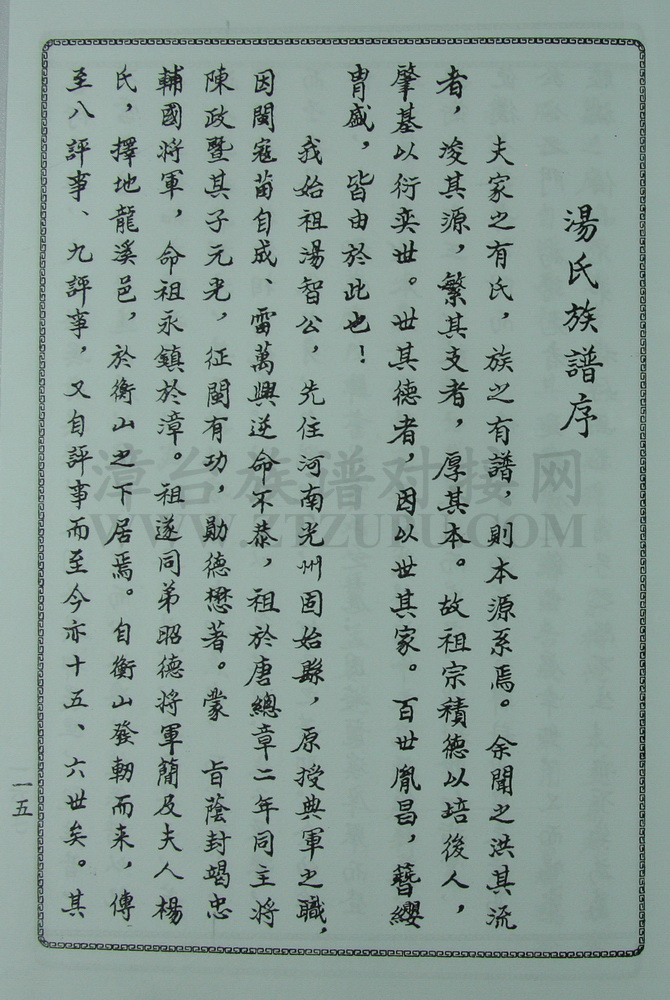 湯氏族譜序
夫家之有氏，族之有譜，則本源系焉。余聞之洪其流
者，浚其源，繁其支者，厚其本。故祖宗積德以培後人，
肇基以衍奕世。世其德者，因以世其家。百世胤昌，簪纓
胄盛，皆由於此也！
我始祖湯智公，先住河南光州固始縣，原授典軍之職，
因閩寇苗自成、雷萬興逆命不恭，祖於唐總章二年同主將
陳政暨其子元光，征閩有功，勛德懋著。蒙 旨蔭封竭忠
輔國將軍，命祖永鎮於漳。祖遂同弟昭德將軍簡及夫人楊
氏，擇地龍溪邑，於衡山之下居焉。自衡山發軔而來，傳
至八評事、九評事，又自評事而至今亦十五、六世矣。其
一五
漳台族谱对接网
WWW.ZTZUPU.COM